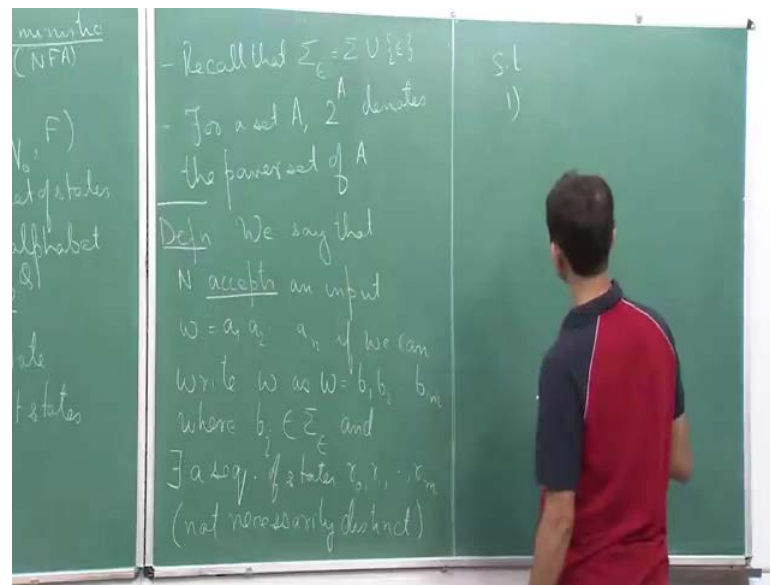 ministic
(NFA)
F)
et of states
alphabet
Q
ate
t states
- Recall that Σ_ε = Σ ∪ {ε}
- For a set A, 2^A denotes
the power set of A
Defn We say that
N accepts an input
w = a₁ a₂ .. a_n if we can
write w as w = b₁ b₂ .. b_m
where b_i ∈ Σ_ε and
∃ a seq. of states r₀, r₁, .., r_m
(not necessarily distinct)
s.t
1)